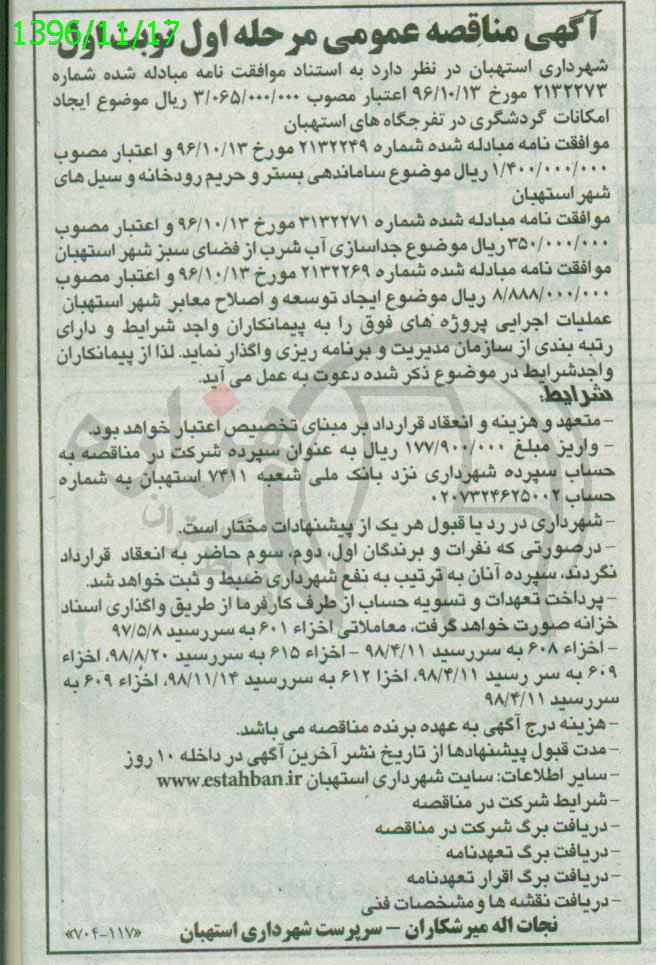 1396/11/17
آگهی مناقصه عمومی مرحله اول نوبت اول
شهرداری استهبان در نظر دارد به استناد موافقت نامه مبادله شده شماره
۲۱۳۲۲۷۳ مورخ ۹۶/۱۰/۱۳ اعتبار مصوب ۳/۰۶۵/۰۰۰/۰۰۰ ریال موضوع ایجاد
امکانات گردشگری در تفرجگاه های استهبان
موافقت نامه مبادله شده شماره ۲۱۳۲۲۴۹ مورخ ۹۶/۱۰/۱۳ و اعتبار مصوب
۱/۴۰۰/۰۰۰/۰۰۰ ریال موضوع ساماندهی بستر و حریم رودخانه و سیل های
شهر استهبان
موافقت نامه مبادله شده شماره ۳۱۳۲۲۷۱ مورخ ۹۶/۱۰/۱۳ و اعتبار مصوب
۳۵۰/۰۰۰/۰۰۰ ریال موضوع جداسازی آب شرب از فضای سبز شهر استهبان
موافقت نامه مبادله شده شماره ۲۱۳۲۲۶۹ مورخ ۹۶/۱۰/۱۳ و اعتبار مصوب
۸/۸۸۸/۰۰۰/۰۰۰ ریال موضوع ایجاد توسعه و اصلاح معابر شهر استهبان
عملیات اجرایی پروژه های فوق را به پیمانکاران واجد شرایط و دارای
رتبه بندی از سازمان مدیریت و برنامه ریزی واگذار نماید. لذا از پیمانکاران
واجدشرایط در موضوع ذکر شده دعوت به عمل می آید.
شرایط:
- متعهد و هزینه و انعقاد قرارداد بر مبنای تخصیص اعتبار خواهد بود.
- واریز مبلغ ۱۷۷/۹۰۰/۰۰۰ ریال به عنوان سپرده شرکت در مناقصه به
حساب سپرده شهرداری نزد بانک ملی شعبه ۷۴۱۱ استهبان به شماره
حساب ۰۲۰۷۳۲۴۶۲۵۰۰۲
- شهرداری در رد یا قبول هر یک از پیشنهادات مختار است.
- درصورتی که نفرات و برندگان اول، دوم، سوم حاضر به انعقاد قرارداد
نگردند، سپرده آنان به ترتیب به نفع شهرداری ضبط و ثبت خواهد شد.
- پرداخت تعهدات و تسویه حساب از طرف کارفرما از طریق واگذاری اسناد
خزانه صورت خواهد گرفت، معاملاتی اخزاء ۶۰۱ به سررسید ۹۷/۵/۸
- اخزاء ۶۰۸ به سررسید ۹۸/۴/۱۱ - اخزاء ۶۱۵ به سررسید ۹۸/۸/۲۰، اخزاء
۶۰۹ به سر رسید ۹۸/۴/۱۱، اخزا ۶۱۲ به سررسید ۹۸/۱۱/۱۴، اخزاء ۶۰۹ به
سررسید ۹۸/۴/۱۱
- هزینه درج آگهی به عهده برنده مناقصه می باشد.
- مدت قبول پیشنهادها از تاریخ نشر آخرین آگهی در داخله ۱۰ روز
- سایر اطلاعات: سایت شهرداری استهبان www.estahban.ir
- شرایط شرکت در مناقصه
- دریافت برگ شرکت در مناقصه
- دریافت برگ تعهدنامه
- دریافت برگ اقرار تعهدنامه
- دریافت نقشه ها و مشخصات فنی
نجات اله میرشکاران - سرپرست شهرداری استهبان
«۷۰۴-۱۱۷»